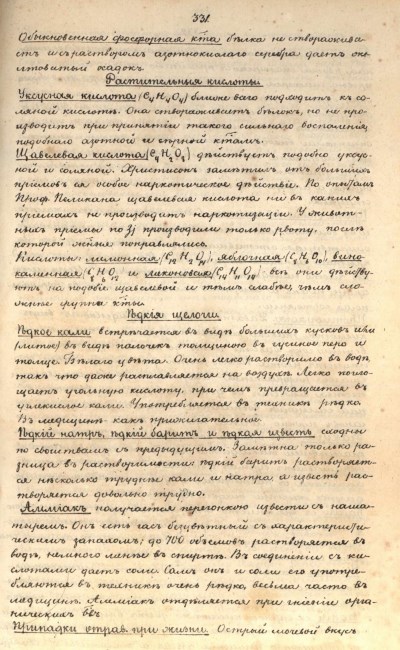 331
Обыкновенная фосфорная к̃та бѣлка не створажива
етъ и съ растворомъ азотнокислаго серебра даетъ
желтоватый осадокъ.
Растительныя кислоты.
Уксусная кислота (C4H4O4) ближе всего подходитъ къ со
ляной кислотѣ. Она створаживаетъ бѣлокъ, но не про
изводитъ при принятіи такого сильнаго воспаленія
подобно азотной и сѣрной к̃тамъ.
Щавелевая кислота дѣйствуетъ подобно уксус
ной и соляной. Христисонъ замѣтилъ отъ большихъ
пріемовъ ея особое наркотическое дѣйствіе. По опытамъ
Проф. Пеликана щавелевая кислота ни въ какихъ
пріемахъ не производитъ наркотизаціи. У живот-
ныхъ пріемы по ʒj производили только рвоту, послѣ
которой поправлялись.
Кислоты: лимонная, яблочная, вино
каменная и : всѣ они дѣйству
ютъ на подобіе щавелевой и тѣмъ слабѣе, чѣмъ сло
жнѣе группа к̃ты.
Ѣдкія щелочи.
Ѣдкое кали встрѣчается въ видѣ большихъ кусковъ или
(литое) въ видѣ палочекъ толщиною въ гусиное перо и
толще. Бѣлаго цвѣта. Очень легко растворимо въ водѣ,
такъ что даже расплывается на воздухѣ. Легко погло
щаетъ угольную кислоту, при чемъ превращается въ
углекислое кали. Употребляется въ техникѣ рѣдко.
Въ медицинѣ какъ прижигательное.
Ѣдкій натръ, ѣдкій баритъ и ѣдкая известь сходны
по свойствамъ съ предыдущимъ. Замѣтна только ра
зница въ растворимости: ѣдкій баритъ растворяет-
ся нѣсколько труднѣе кали и натра, а известь рас-
творяется довольно трудно.
Амміакъ получается перегонкою извести съ наша
тыремъ. Онъ есть газъ безцвѣтный съ характеристи
ческимъ запахомъ; до 700 объемовъ растворяется въ
водѣ, немного менѣе въ спиртѣ. Въ соединеніи съ ки-
слотами даетъ соли. Самъ онъ и соли его употре-
бляются въ техникѣ очень рѣдко, весьма часто въ
медицинѣ. Амміакъ отдѣляется при гніеніи орга-
ническихъ в̃въ.
Припадки отрав. при жизни. Острый мочевой вкусъ